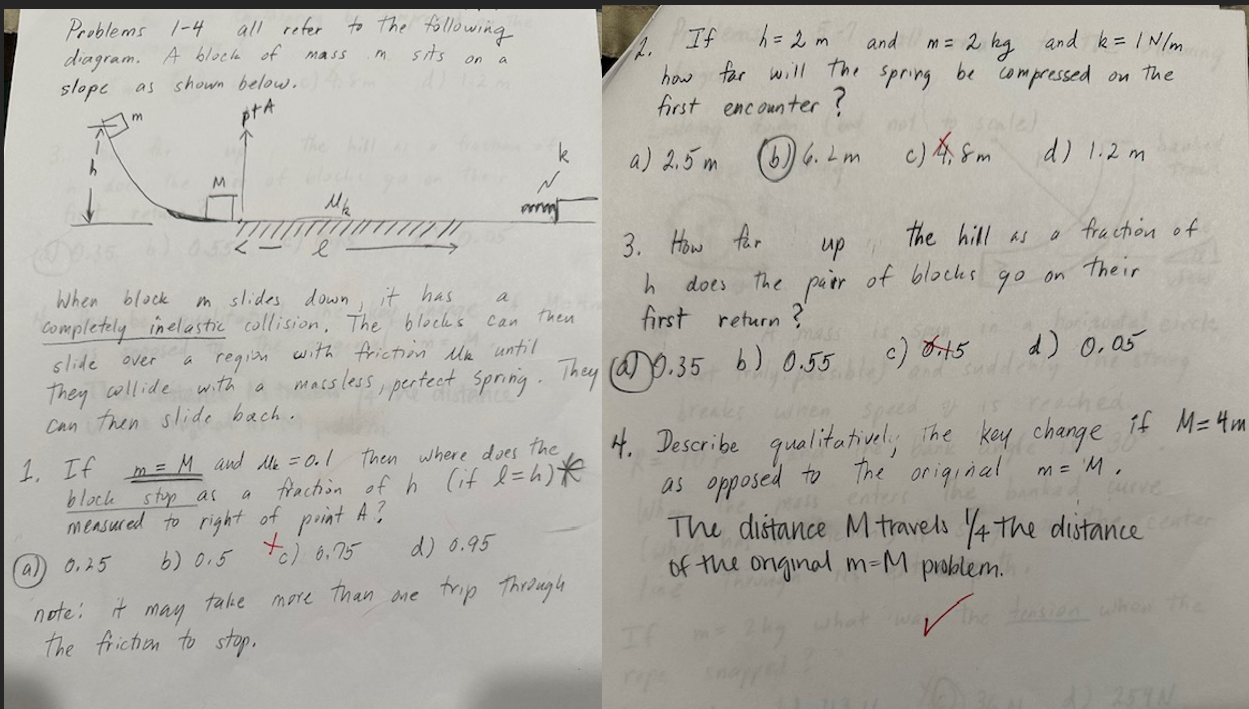 Problems 1-4 all refer to the following
diagram. A block of mass m sits on a
slope as shown below.
m
pt A
h
M
μk
k
l
When block m slides down, it has a
completely inelastic collision. The blocks can then
slide over a region with friction μk until
they collide with a massless, perfect spring. They
can then slide back.
1. If m = M and μk = 0.1 then where does the
block stop as a fraction of h (if l = h)*
measured to right of point A?
a) 0.25 b) 0.5 c) 0.75 d) 0.95
note: it may take more than one trip through
the friction to stop.
2. If h = 2 m and m = 2 kg and k = 1 N/m
how far will the spring be compressed on the
first encounter?
a) 2.5 m b) 6.2 m c) 4.8 m d) 1.2 m
3. How far up the hill as a fraction of
h does the pair of blocks go on their
first return?
a) 0.35 b) 0.55 c) 0.15 d) 0.05
4. Describe qualitatively, the key change if M = 4m
as opposed to the original m = M.
The distance M travels 1/4 the distance
of the original m=M problem.